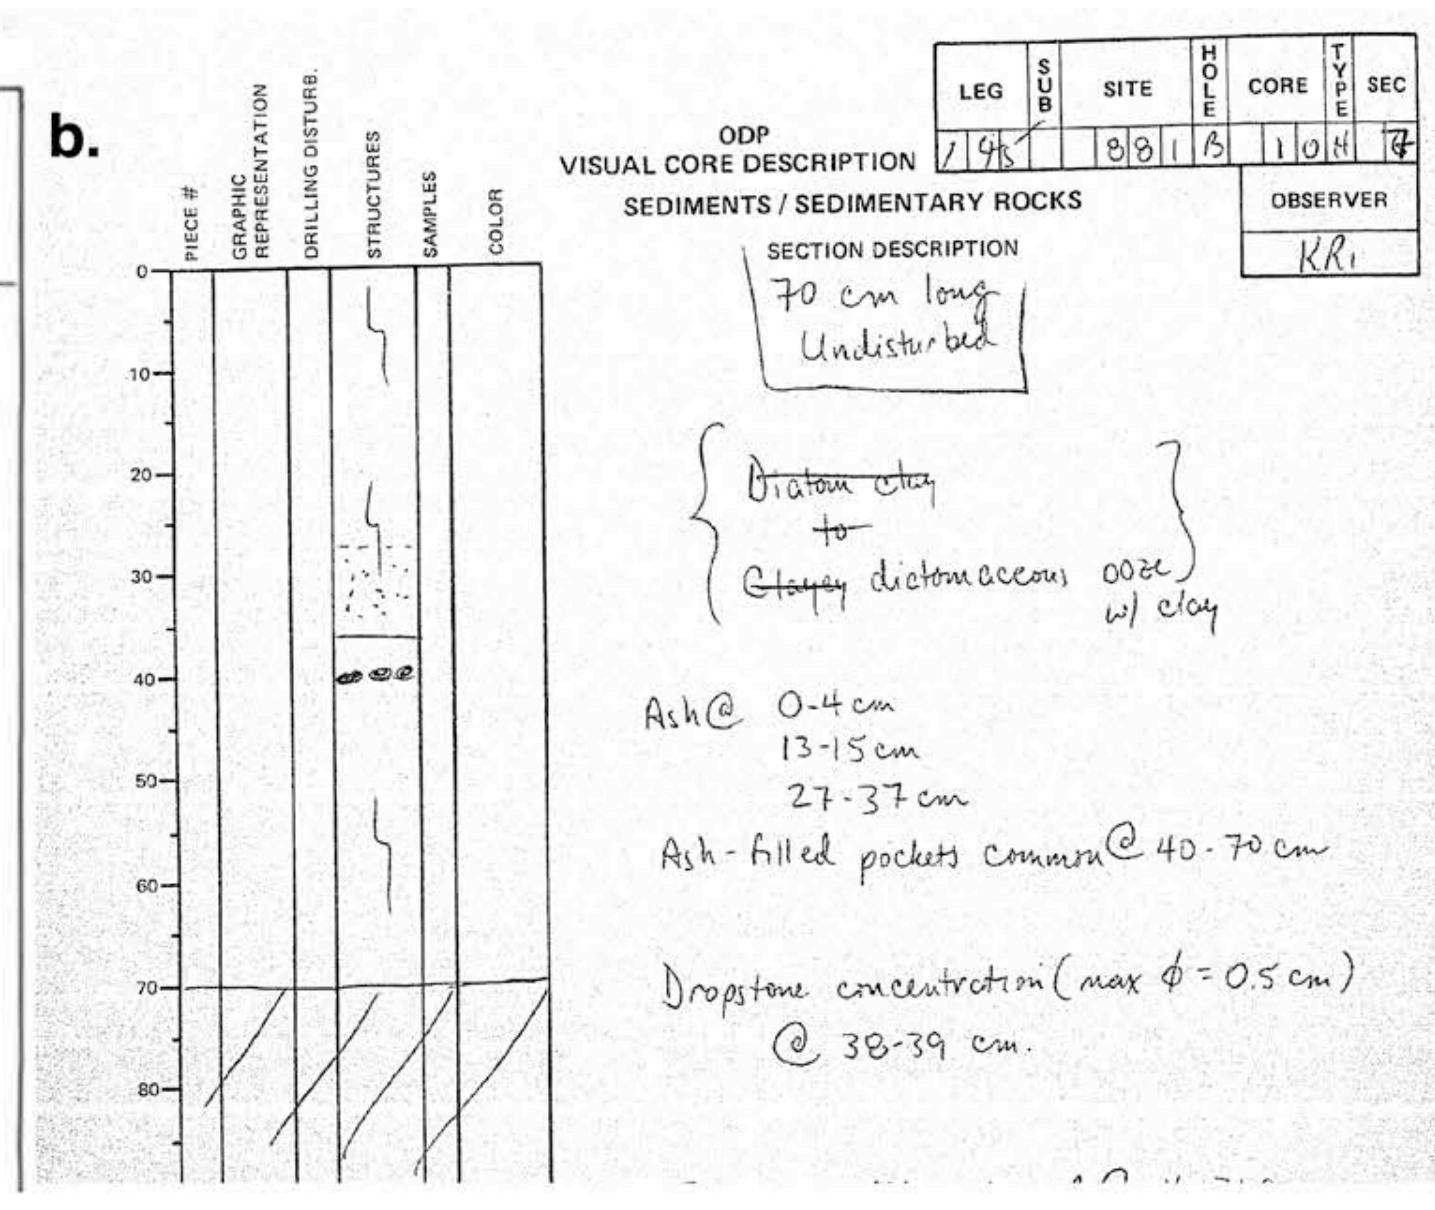 b.
PIECE #
GRAPHIC REPRESENTATION
DRILLING DISTURB.
STRUCTURES
SAMPLES
COLOR
ODP
VISUAL CORE DESCRIPTION
SEDIMENTS / SEDIMENTARY ROCKS
LEG SUB SITE HOLE CORE TYPE SEC
145 881 B 10 H 7
OBSERVER
KRi
SECTION DESCRIPTION
70 cm long
Undisturbed
0
10
20
30
40
50
60
70
80
Diatom clay
to
Clayey diatomaceous ooze
w/ clay
Ash @ 0-4 cm
13-15 cm
27-37 cm
Ash-filled pockets common @ 40-70 cm
Dropstone concentration (max ϕ = 0.5 cm)
@ 38-39 cm.